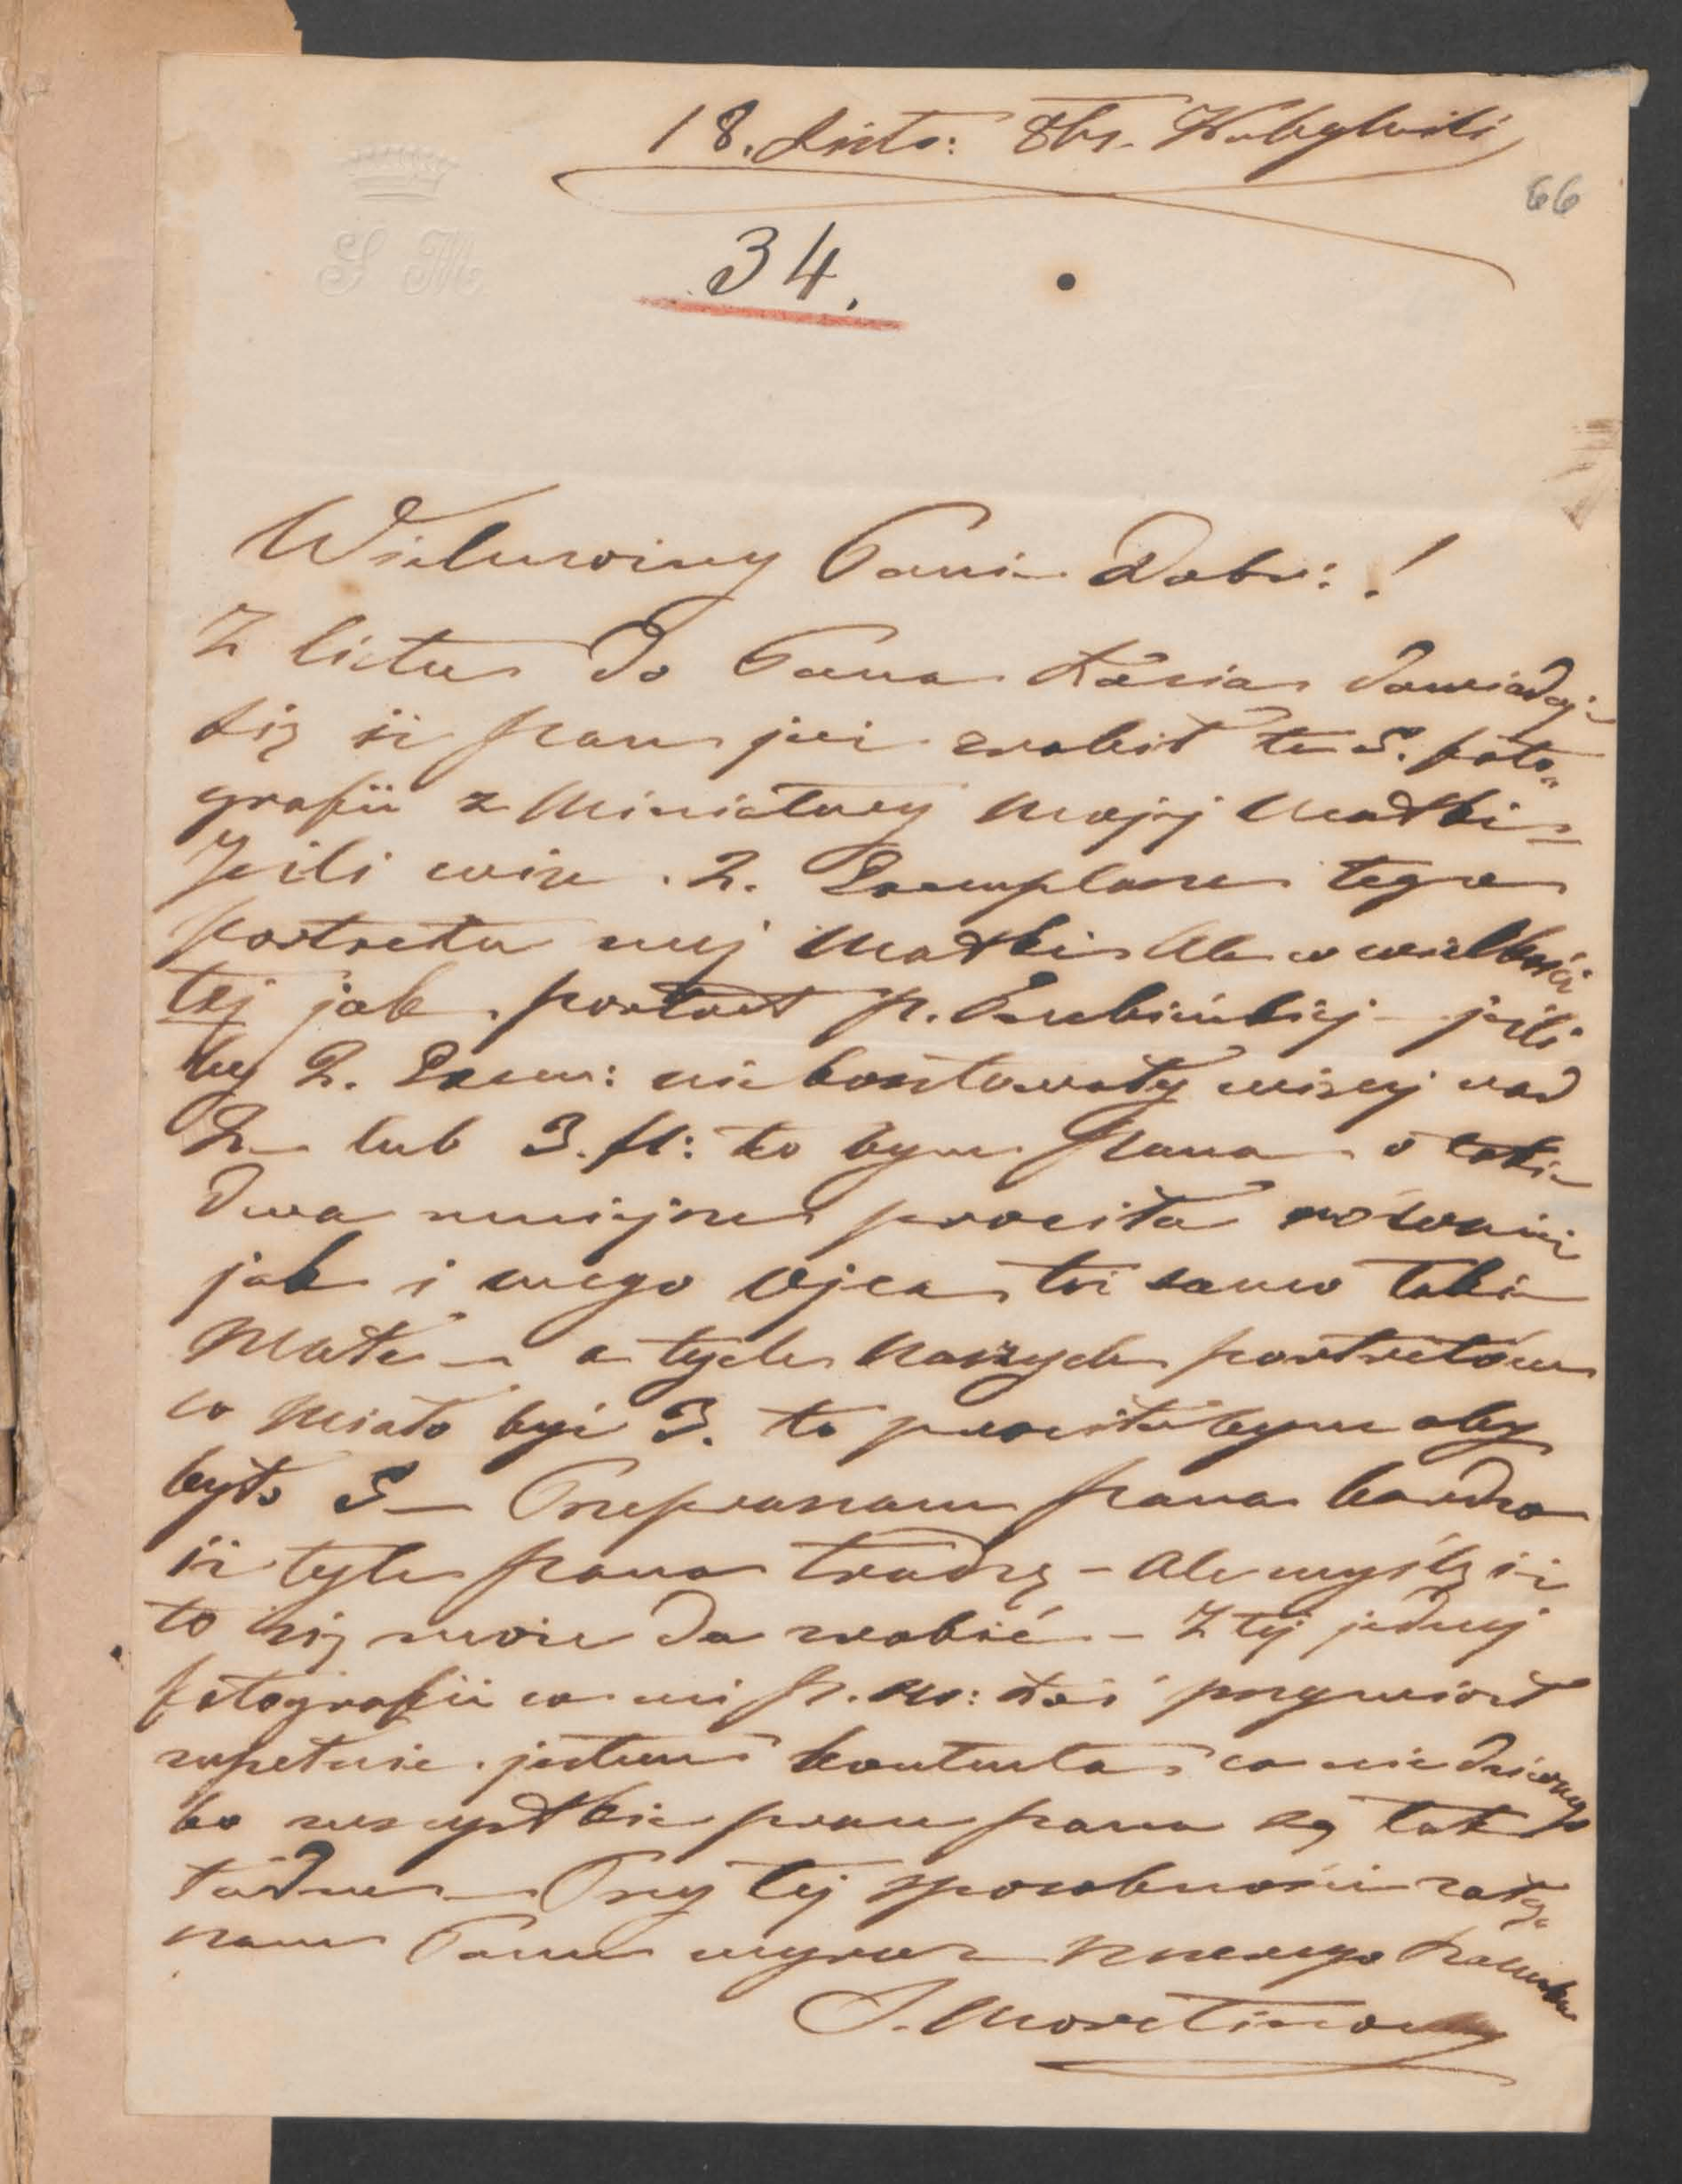 18. Listo: 8br.
66
S M
34.
Wielmożny Panie Dobr: !
Z listu do Pana Kazia dowiaduję
się iż pan już zrobił te 5. foto„
grafii z Miniatury mojej Matki –
Jeżli więc . 2. Exemplarze tego
portretu mej Matki Ale w wielkości
tej jak . portret p. – jeżli
by 2. Exem: nie kosztowały więcej nad
2 – lub 3. fl: to bym Pana o takie
dwa mniejsze prosiła również
jak i mego Ojca też samo takie
Małe – a tych naszych portretów
co miało być 3. to prosiłabym aby
było 5 – Przepraszam pana bardzo
iż tyle pana trudzę – Ale myślę iż
to się może da zrobić – Z tej jednej
fotografii co mi p. przywiózł
zupełnie . jestem kontenta co nie dziwnego
bo wszystkie prace pana są tak
ładne – Przy tej sposobności załą„
czam Panu wyraz mego szacunku